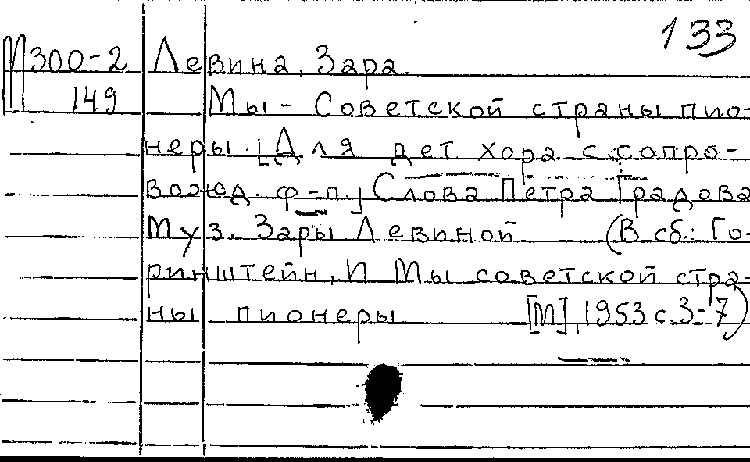 133
М300-2 Левина, Зара.
149 Мы - Советской страны пио-
неры. [Для дет. хора с сопро-
вожд. ф-п.] Слова Петра Градова
Муз. Зары Левиной (В сб.: Го-
ринштейн, И Мы советской стра-
ны пионеры [М], 1953 с. 3-7)